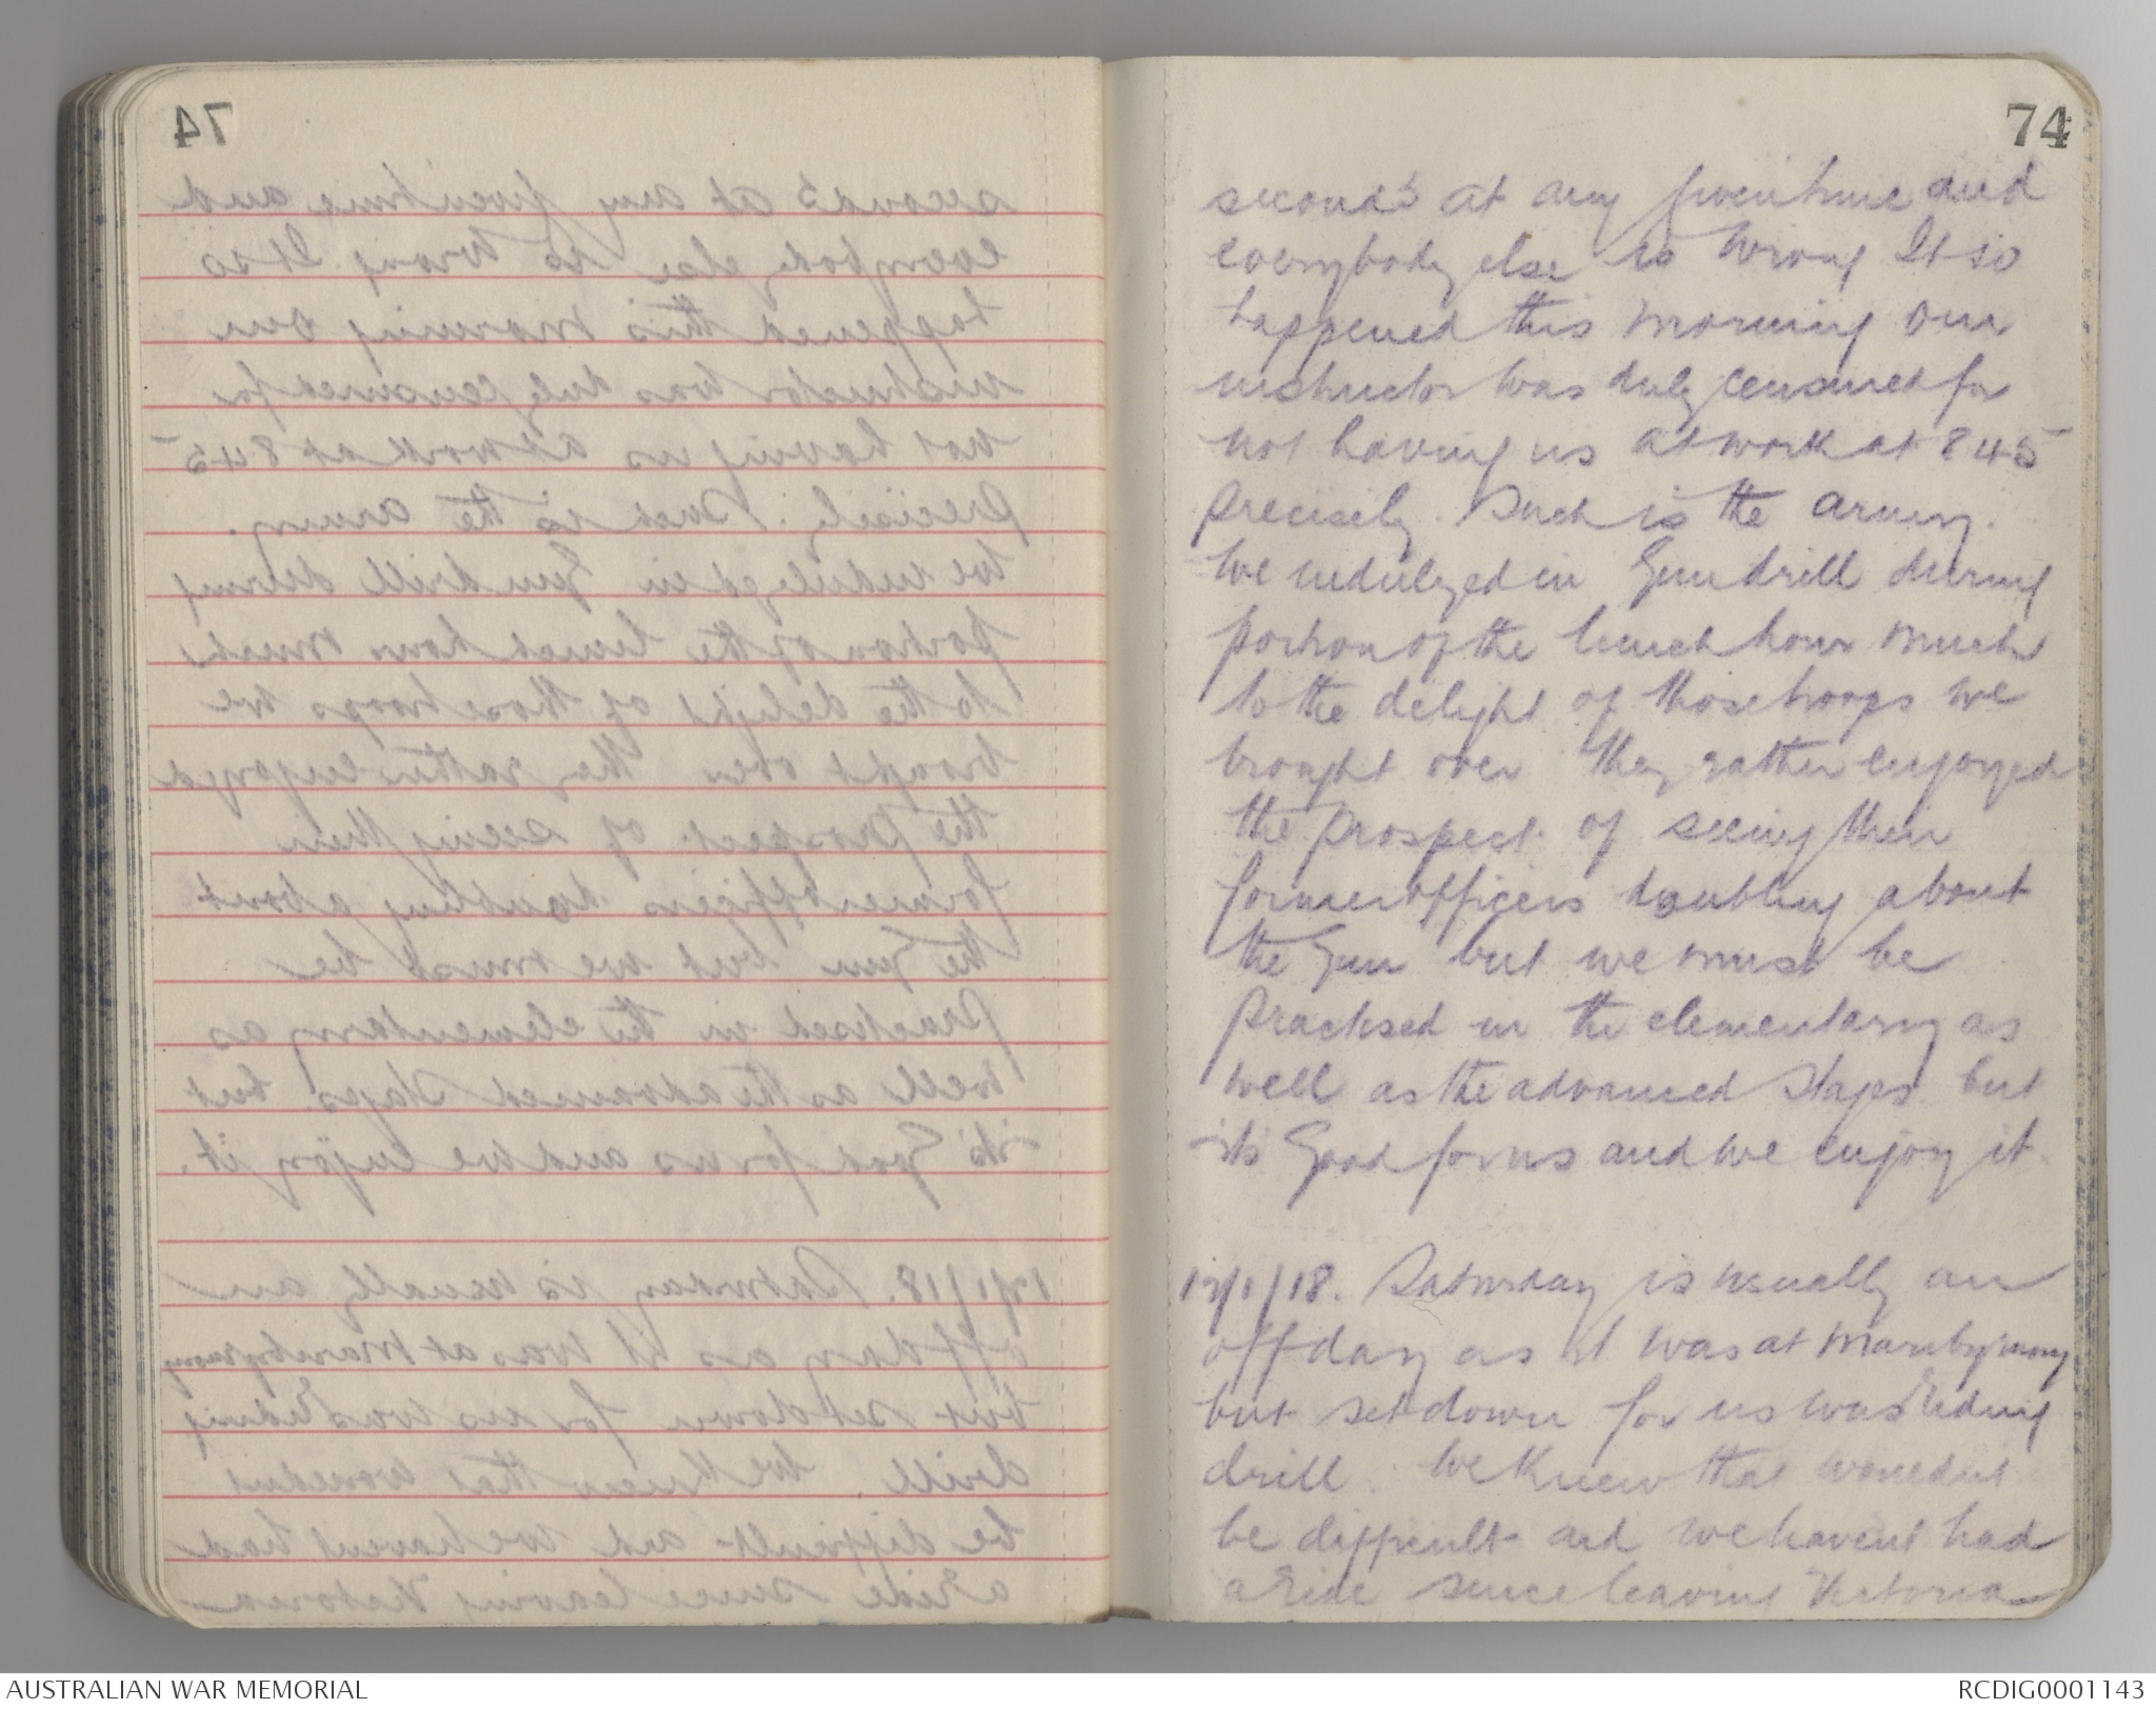 74
seconds at any given time and
everybody else is wrong It so
happened this morning our
instructor was duly censured for
not having us at work at 845
precisely. Such is the army.
We indulged in Gun drill during
portion of the lunch hour much
to the delight of those troops we
brought over they rather enjoyed
the prospect of seeing their
former officers doubling about
the Gun but we must be
practised in the elementary as
well as the advanced stages but
its Good for us and we enjoy it.
/1/18. Saturday is usually an
off day as it was at Maribyrnong
but set down for us was Riding
drill. We knew that wouldnt
be difficult and we havent had
a Ride since leaving Victoria
AUSTRALIAN WAR MEMORIAL
RCDIG0001143